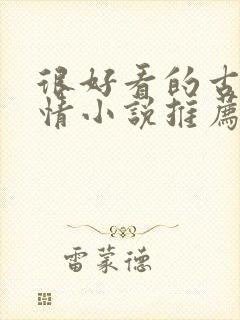 很好看的古
情小說推薦
雷蒙德